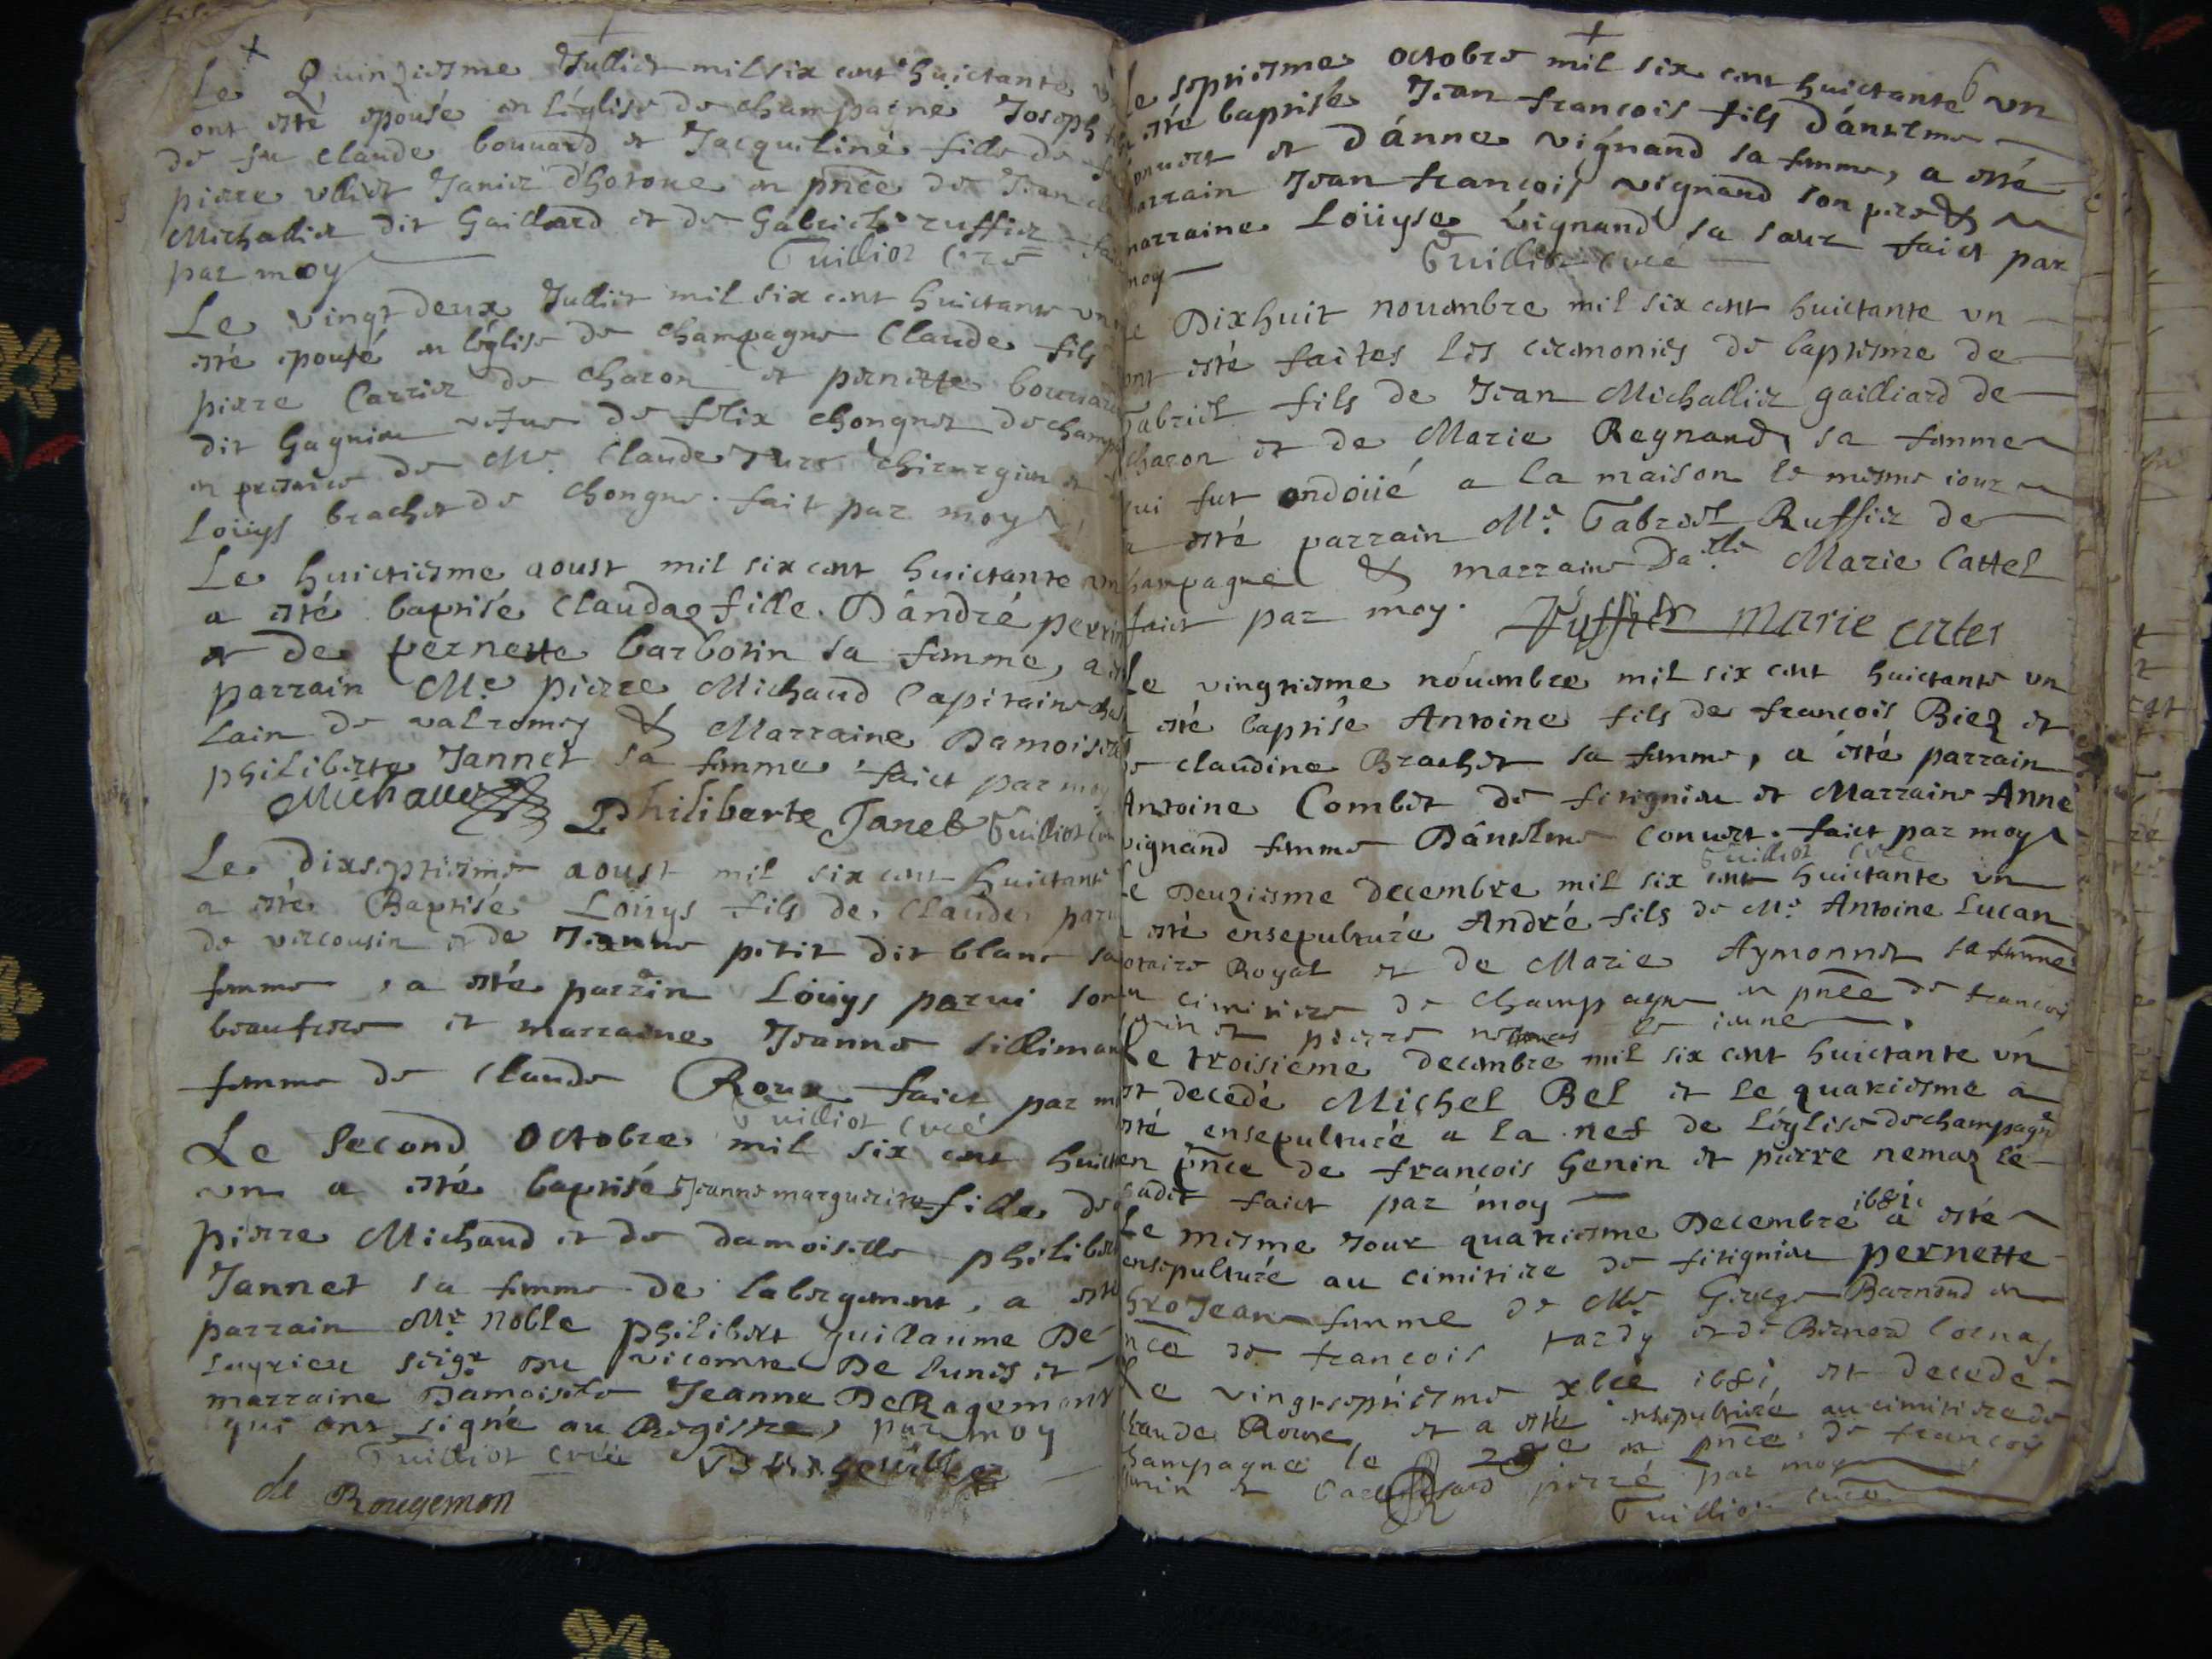 Le Quinziesme Julliet mil six cent huictante
ont esté epousé en l'église de champagne Joseph
de feu claude bouuard et Jacqueline fille de
pierre ulliet Janier d'hotone en pnce de Jean
Michallier dit Gaillard et de Gabriel ruffier
par moy
Guilliot curé
Le vingt deux Julliet mil six cent huictante vn
esté epousé en léglise de champagne Claude fils
pierre Carrier de charon et pernette bouuard
dit Gagnieu vefue de felix chongnet de champ
en presence de Mr. Claude chirurgien et
Loüys brachet de chongne. fait par moy
Le huictiesme aoust mil six cent huictante vn
a esté baptisé Clauda fille D'andré perrin
et de pernette barbotin sa femme, a
parrain Me pierre Michaud Capitaine cha
lain de valromey & Marraine Damoiselle
philiberte Jannet sa femme, faict par moy
Michaud Philiberte Janet Guilliot
Le dixseptiesme aoust mil six cent huictante
a esté Baptisé Loüys fils de Claude parui
de vercousin et de Jeanne petit dit blanc sa
femme, a esté parrin Loüys parui son
beaufrere et marraine Jeanne silliman
femme de claude Roux faict par m
Guilliot curé
Le second octobre mil six cent huict
vn a esté baptisé Jeanne marguerite fille de
pierre Michaud et de damoiselle philiber
Jannet sa femme de labergement, a esté
parrain Mr noble philibert guillaume De
Seyrieu seigr du vicomte De lunes et
marraine Damoiselle Jeanne De Rogemont
qui ont signé au Registre, par moy
Guilliot curé
de Rougemon
6
Le septiesme octobre mil six cent huictante vn
esté baptisé Jean françois fils d'anselme
conuert et d'anne vignand sa femme, a esté
parrain Jean françois vignand son pere &
marraine Loüyse vignand sa sœur faict par
moy Guilliot curé
Le Dixhuit nouembre mil six cent huictante vn
ont esté faites les ceremonies de baptesme de
Gabriel fils de Jean Michallier gailliard de
charon et de Marie Regnand sa femme
qui fut ondoüé a la maison le mesme iour
a esté parrain Mr. Gabriel Ruffier de
champagne & marraine Dalle Marie Cattel
faict par moy. Ruffier marie catel
Le vingtiesme nouembre mil six cent huictante vn
esté baptisé Antoine fils de françois Biez et
de claudine Brachet sa femme, a esté parrain
Antoine Combet de fitignieu et Marraine Anne
vignand femme D'anselme Conuert. faict par moy
Guilliot curé
Le Deuziesme decembre mil six cent huictante vn
esté ensepulturé André fils de Mr. Antoine Lucan
notaire Royal et de Marie Aymonnet sa femme
cimitiere de champagne en pnce de françois
genin et pierre le ieune.
Le troisieme decembre mil six cent huictante vn
est decedé Michel Bel et le quatriesme a
esté ensepulturé a la nef de l'église de champagne
en pnce de françois Genin et pierre nemaz le
cadet faict par moy
Le mesme iour quatriesme Decembre 1681 a esté
ensepulturé au cimitiere de fitignieu pernette
GroJean femme de Mr. George Barnoud en
pnce de françois tardy et de Bernard Cornaz.
Le vingtseptiesme xbre 1681 est decedé
claude Roux, et a esté ensepulturé au cimitiere de
champagne le 28e en pnce de françois
genin et pierre par moy
Guilliot curé